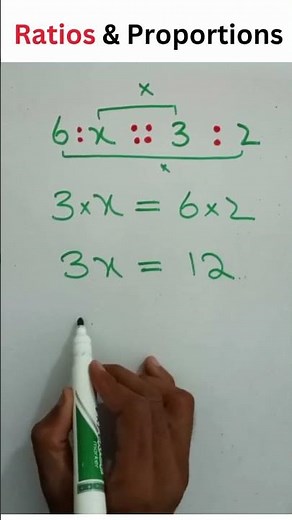 Ratios & Proportions
x
6 : x :: 3 : 2
x
3 × x = 6 × 2
3x = 12